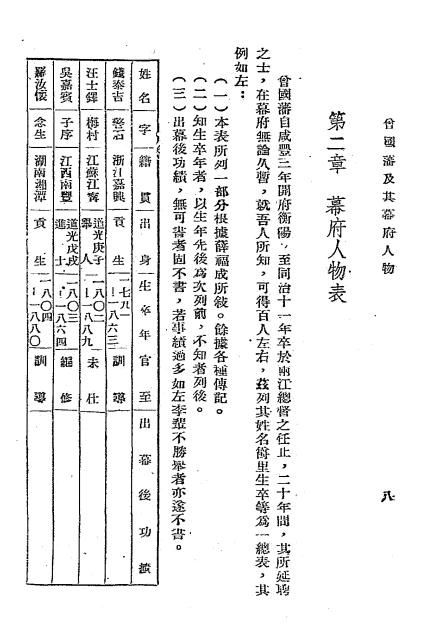 曾國藩及其幕府人物 八
第二章 幕府人物表
曾國藩自咸豐三年開府衡陽,至同治十一年卒於兩江總督之任止,二十年間,其所延聘
之士,在幕府無論久暫,就吾人所知,可得百人左右,茲列其姓名爵里生卒等爲一總表,其
例如左:
(一)本表所列一部分根據薛福成所敍。餘據各種傳記。
(二)知生卒年者,以生年先後爲次列前,不知者列後。
(三)出幕後功績,無可書者固不書,若事績過多如左李輩不勝舉者亦遂不書。
姓名 字 籍貫 出身 生卒年 官至 出幕後功績
錢泰吉 警石 浙江嘉興 貢生 一七九一—一八六三 訓導
汪士鐸 梅村 江蘇江寧 道光庚子舉人 一八〇二—一八八九 未仕
吳嘉賓 子序 江西南豐 道光戊戌進士 一八〇三—一八六四 編修
羅汝懷 念生 湖南湘潭 貢生 一八〇四—一八八〇 訓導